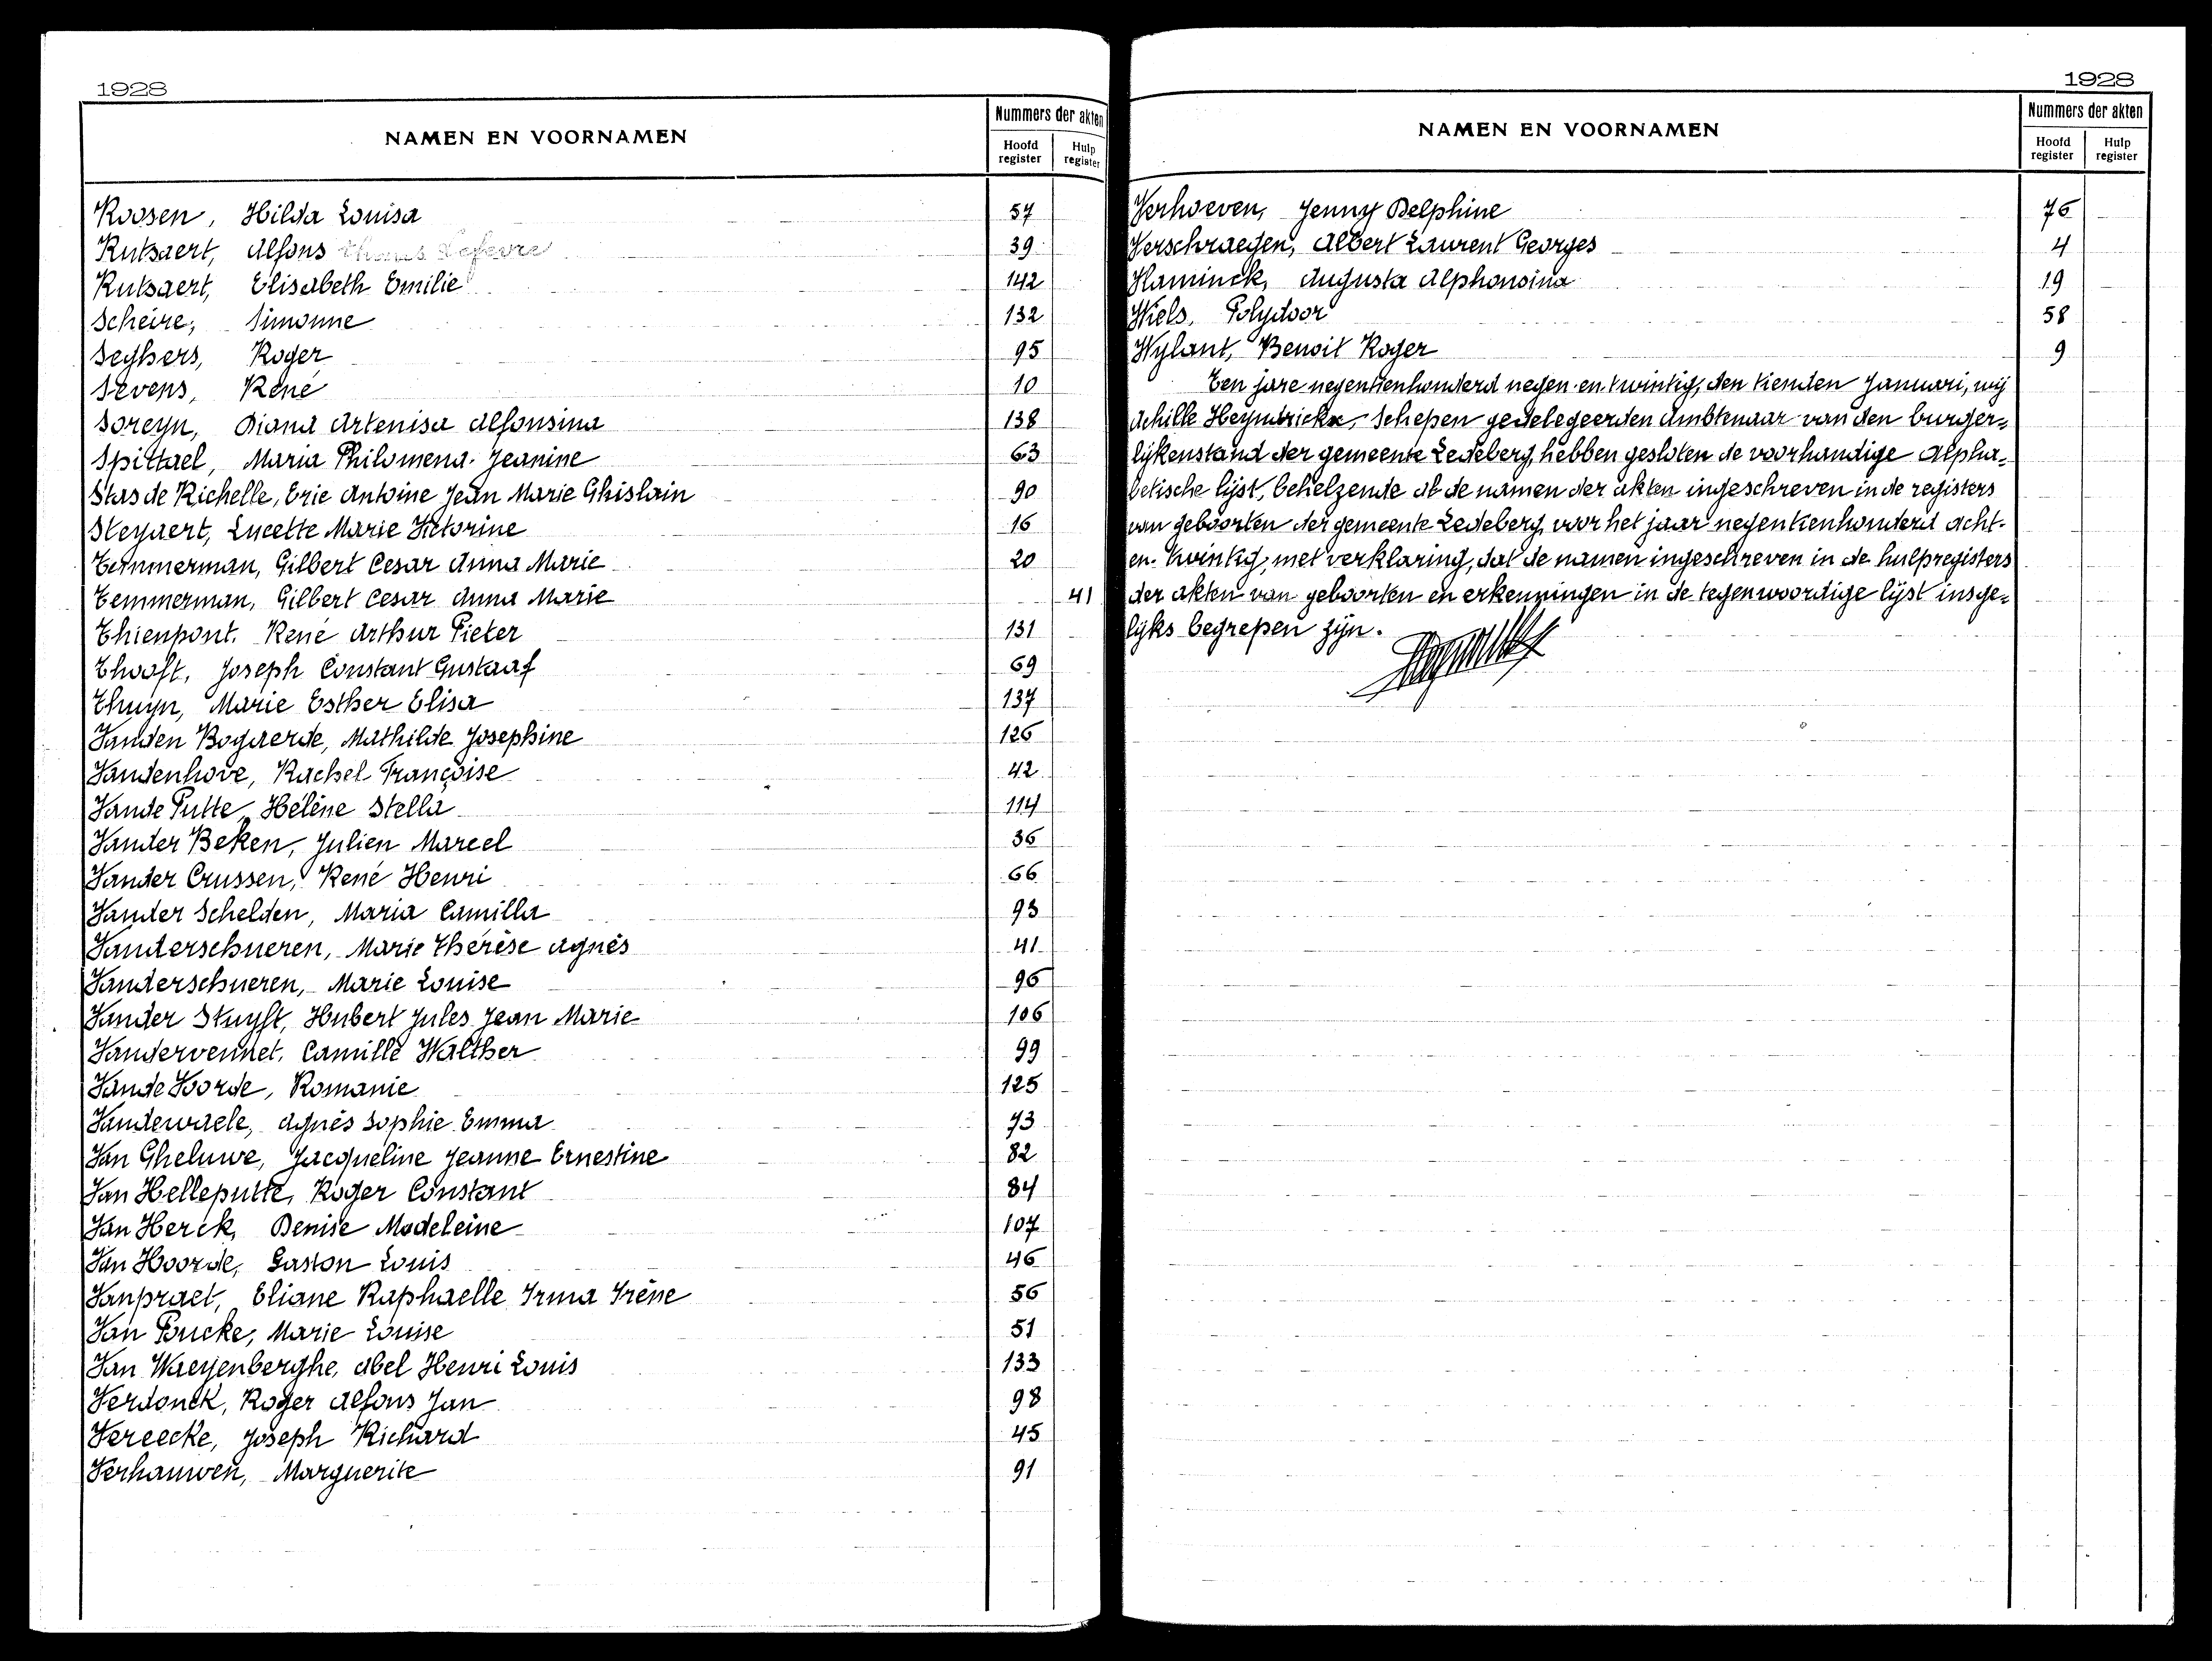 1928
NAMEN EN VOORNAMEN
Nummers der akten
Hoofd register
Hulp register
Roosen, Hilda Louisa 57
Rutsaert, Alfons Lefevre 39
Rutsaert, Elisabeth Emilie 142
Scheire, Simonne 132
Seghers, Roger 95
Sevens, René 10
Soreyn, Diana Artenisa Alfonsina 138
Spittael, Maria Philomena Jeanine 63
Stas de Richelle, Eric Antoine Jean Marie Ghislain 90
Steyaert, Lucette Marie Victorine 16
Temmerman, Gilbert Cesar Anna Marie 20
Temmerman, Gilbert Cesar Anna Marie 41
Thienpont, René Arthur Pieter 131
Thooft, Joseph Constant Gustaaf 69
Thuyn, Marie Esther Elisa 137
Vanden Bogaerde, Mathilde Josephine 126
Vandenhove, Rachel Françoise 42
Vande Putte, Hélène Stella 114
Vander Beken, Julien Marcel 36
Vander Crussen, René Henri 66
Vander Schelden, Maria Camilla 93
Vanderschueren, Marie Thérèse Agnès 41
Vanderschueren, Marie Louise 96
Vander Stuyft, Hubert Jules Jean Marie 106
Vandervennet, Camille Walther 99
Vande Voorde, Romanie 125
Vandewaele, Agnès Sophie Emma 73
Van Gheluwe, Jacqueline Jeanne Ernestine 82
Van Helleputte, Roger Constant 84
Van Herck, Denise Madeleine 107
Van Hoorde, Gaston Louis 46
Vanpraet, Eliane Raphaelle Irma Irène 56
Van Poucke, Marie Louise 51
Van Waeyenberghe, Abel Henri Louis 133
Verdonck, Roger Alfons Jan 98
Vereecke, Joseph Richard 45
Verhauwen, Marguerite 91
1928
NAMEN EN VOORNAMEN
Nummers der akten
Hoofd register
Hulp register
Verhoeven, Jenny Delphine 76
Verschraegen, Albert Laurent Georges 4
Vlaminck, Augusta Alphonsina 19
Wiels, Polydoor 58
Wylant, Benoit Roger 9
Ten jare negentienhonderd negen-en-twintig, den tienden Januari, wij
Achille Heyndrickx, Schepen gedelegeerden Ambtenaar van den burger=
lijkenstand der gemeente Ledeberg, hebben gesloten de voorhandige Alpha=
betische lijst, behelzende al de namen der akten ingeschreven in de registers
van geboorten der gemeente Ledeberg, voor het jaar negentienhonderd acht-
en-twintig, met verklaring, dat de namen ingeschreven in de hulpregisters
der akten van geboorten en erkenningen in de tegenwoordige lijst insge=
lijks begrepen zijn.